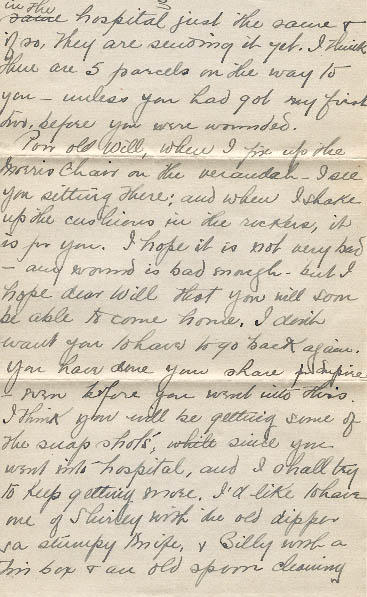 in the
same hospital just the same &
if so, they are sending it yet. I think
there are 5 parcels on the way to
you – unless you had got my first
two, before you were wounded.
Poor old Will, when I fix up the
Morris Chair on the verandah – I see
you sitting there; and when I shake
up the cushions in the rockers, it
is for you. I hope it is not very bad
– any wound is bad enough – but I
hope dear Will that you will soon
be able to come home. I don't
want you to have to go back again.
You have done your share
– even before you went into this.
I think you will be getting some of
the snap shots, while since you
went into hospital, and I shall try
to keep getting more. I'd like to have
one of Shirley with the old dipper
& a stumpy knife, & Billy with a
tin box & an old spoon cleaning